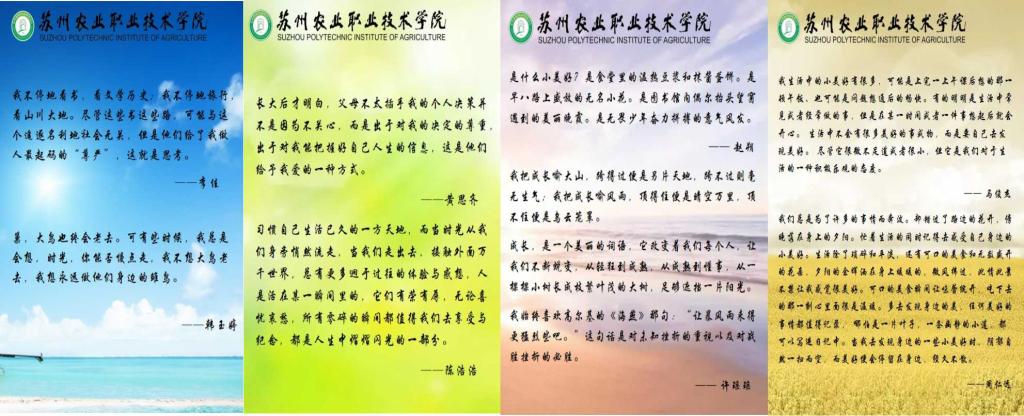 苏州农业职业技术学院
SUZHOU POLYTECHNIC INSTITUTE OF AGRICULTURE
我不停地看书，看文学历史；我不停地旅行，
看山川大地。尽管这些书这些路，可能与这
个追逐名利地社会无关，但是他们给了我做
人最起码的“尊严”，这就是思考。
——李佳
巢，大鸟也终会老去。可有些时候，我总是
会想，时光，你能否慢点走，我不想大鸟老
去，我想永远做他们身边的雏鸟。
——韩玉婷
苏州农业职业技术学院
SUZHOU POLYTECHNIC INSTITUTE OF AGRICULTURE
长大后才明白，父母不太插手我的个人决策并
不是因为不关心，而是出于对我的决定的尊重，
出于对我能把握好自己人生的信息，这是他们
给予我爱的一种方式。
——黄思齐
习惯自己生活已久的一方天地，而当时光从我
们身旁悄然流走，当我们走出去，接触外面万
千世界，总有更多迥于过往的体验与感想，人
是活在某一瞬间里的，它们有荣有辱，无论喜
忧哀愁，所有零碎的瞬间都值得我们去享受与
纪念，都是人生中熠熠闪光的一部分。
——陈浩浩
苏州农业职业技术学院
SUZHOU POLYTECHNIC INSTITUTE OF AGRICULTURE
是什么小美好？是食堂里的温热豆浆和抹酱蛋饼。是
早八路上盛放的无名小花。是图书馆内偶尔抬头望窗
遇到的美丽晚霞。是无畏少年奋力拼搏的意气风发。
——赵朔
我把成长喻大山，跨得过便是另片天地，跨不过则毫
无生气；我把成长喻风雨，顶得住便是晴空万里，顶
不住便是乌云笼罩。
成长，是一个美丽的词语，它改变着我们每个人，让
我们不断蜕变，从轻狂到成熟，从成熟到懂事，从一
棵棵小树长成枝繁叶茂的大树，足够遮挡一片阳光。
我始终喜欢高尔基的《海燕》那句：“让暴风雨来得
更猛烈些吧。”这句话是对未知挫折的重视以及对战
胜挫折的必胜。
——许瑶瑶
苏州农业职业技术学院
SUZHOU POLYTECHNIC INSTITUTE OF AGRICULTURE
我生活中的小美好有很多，可能是上完一上午课后想的那一
顿午饭，也可能是问题想通后的畅快。有的明明是生活中常
见或者经常做的事，但是在某一时间或者一件事想起后就会
开心。生活中不会有很多美好的事或物，而是靠自己去发
现美好。尽管它很微不足道或者很小，但它是我们对于生
活的一种积极乐观的态度。
——马俊杰
我们总是为了许多的事情而奔波。却错过了路边的花开，傍
晚落在身上的夕阳。忙着生活的同时记得去感受自己身边的
小美好。生活除了琐碎和平淡，还有可口的美食和无数盛开
的花喜，夕阳的余晖洒在身上暖暖的，微风拂过，此情此景
本案让我感觉很美好。可口的美食瞬间让味蕾绽开，吃下去
的那一刹心里面很是温暖。多去发现身边的美，任何美好的
事情都值得记录，哪怕是一片叶子，一条幽静的小道，都
可以写进日记中。当我去发现身边的一些小美好时，阴郁自
然一扫而空，而美好便会停留在身边，经久不散。
——周仁远